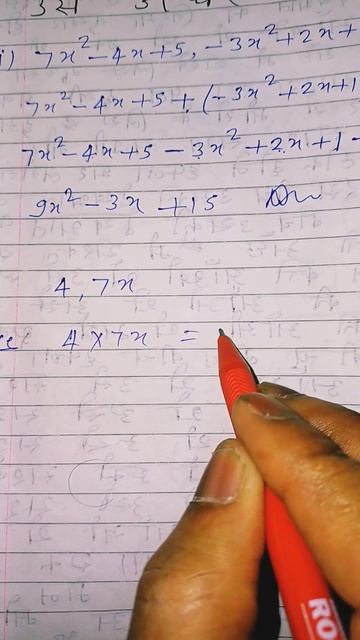 i) 7x² - 4x + 5, - 3x² + 2x +
7x² - 4x + 5 + (- 3x² + 2x + 1
7x² - 4x + 5 - 3x² + 2x + 1 -
9x² - 3x + 15 Ans
4, 7x
4 × 7x =
RO